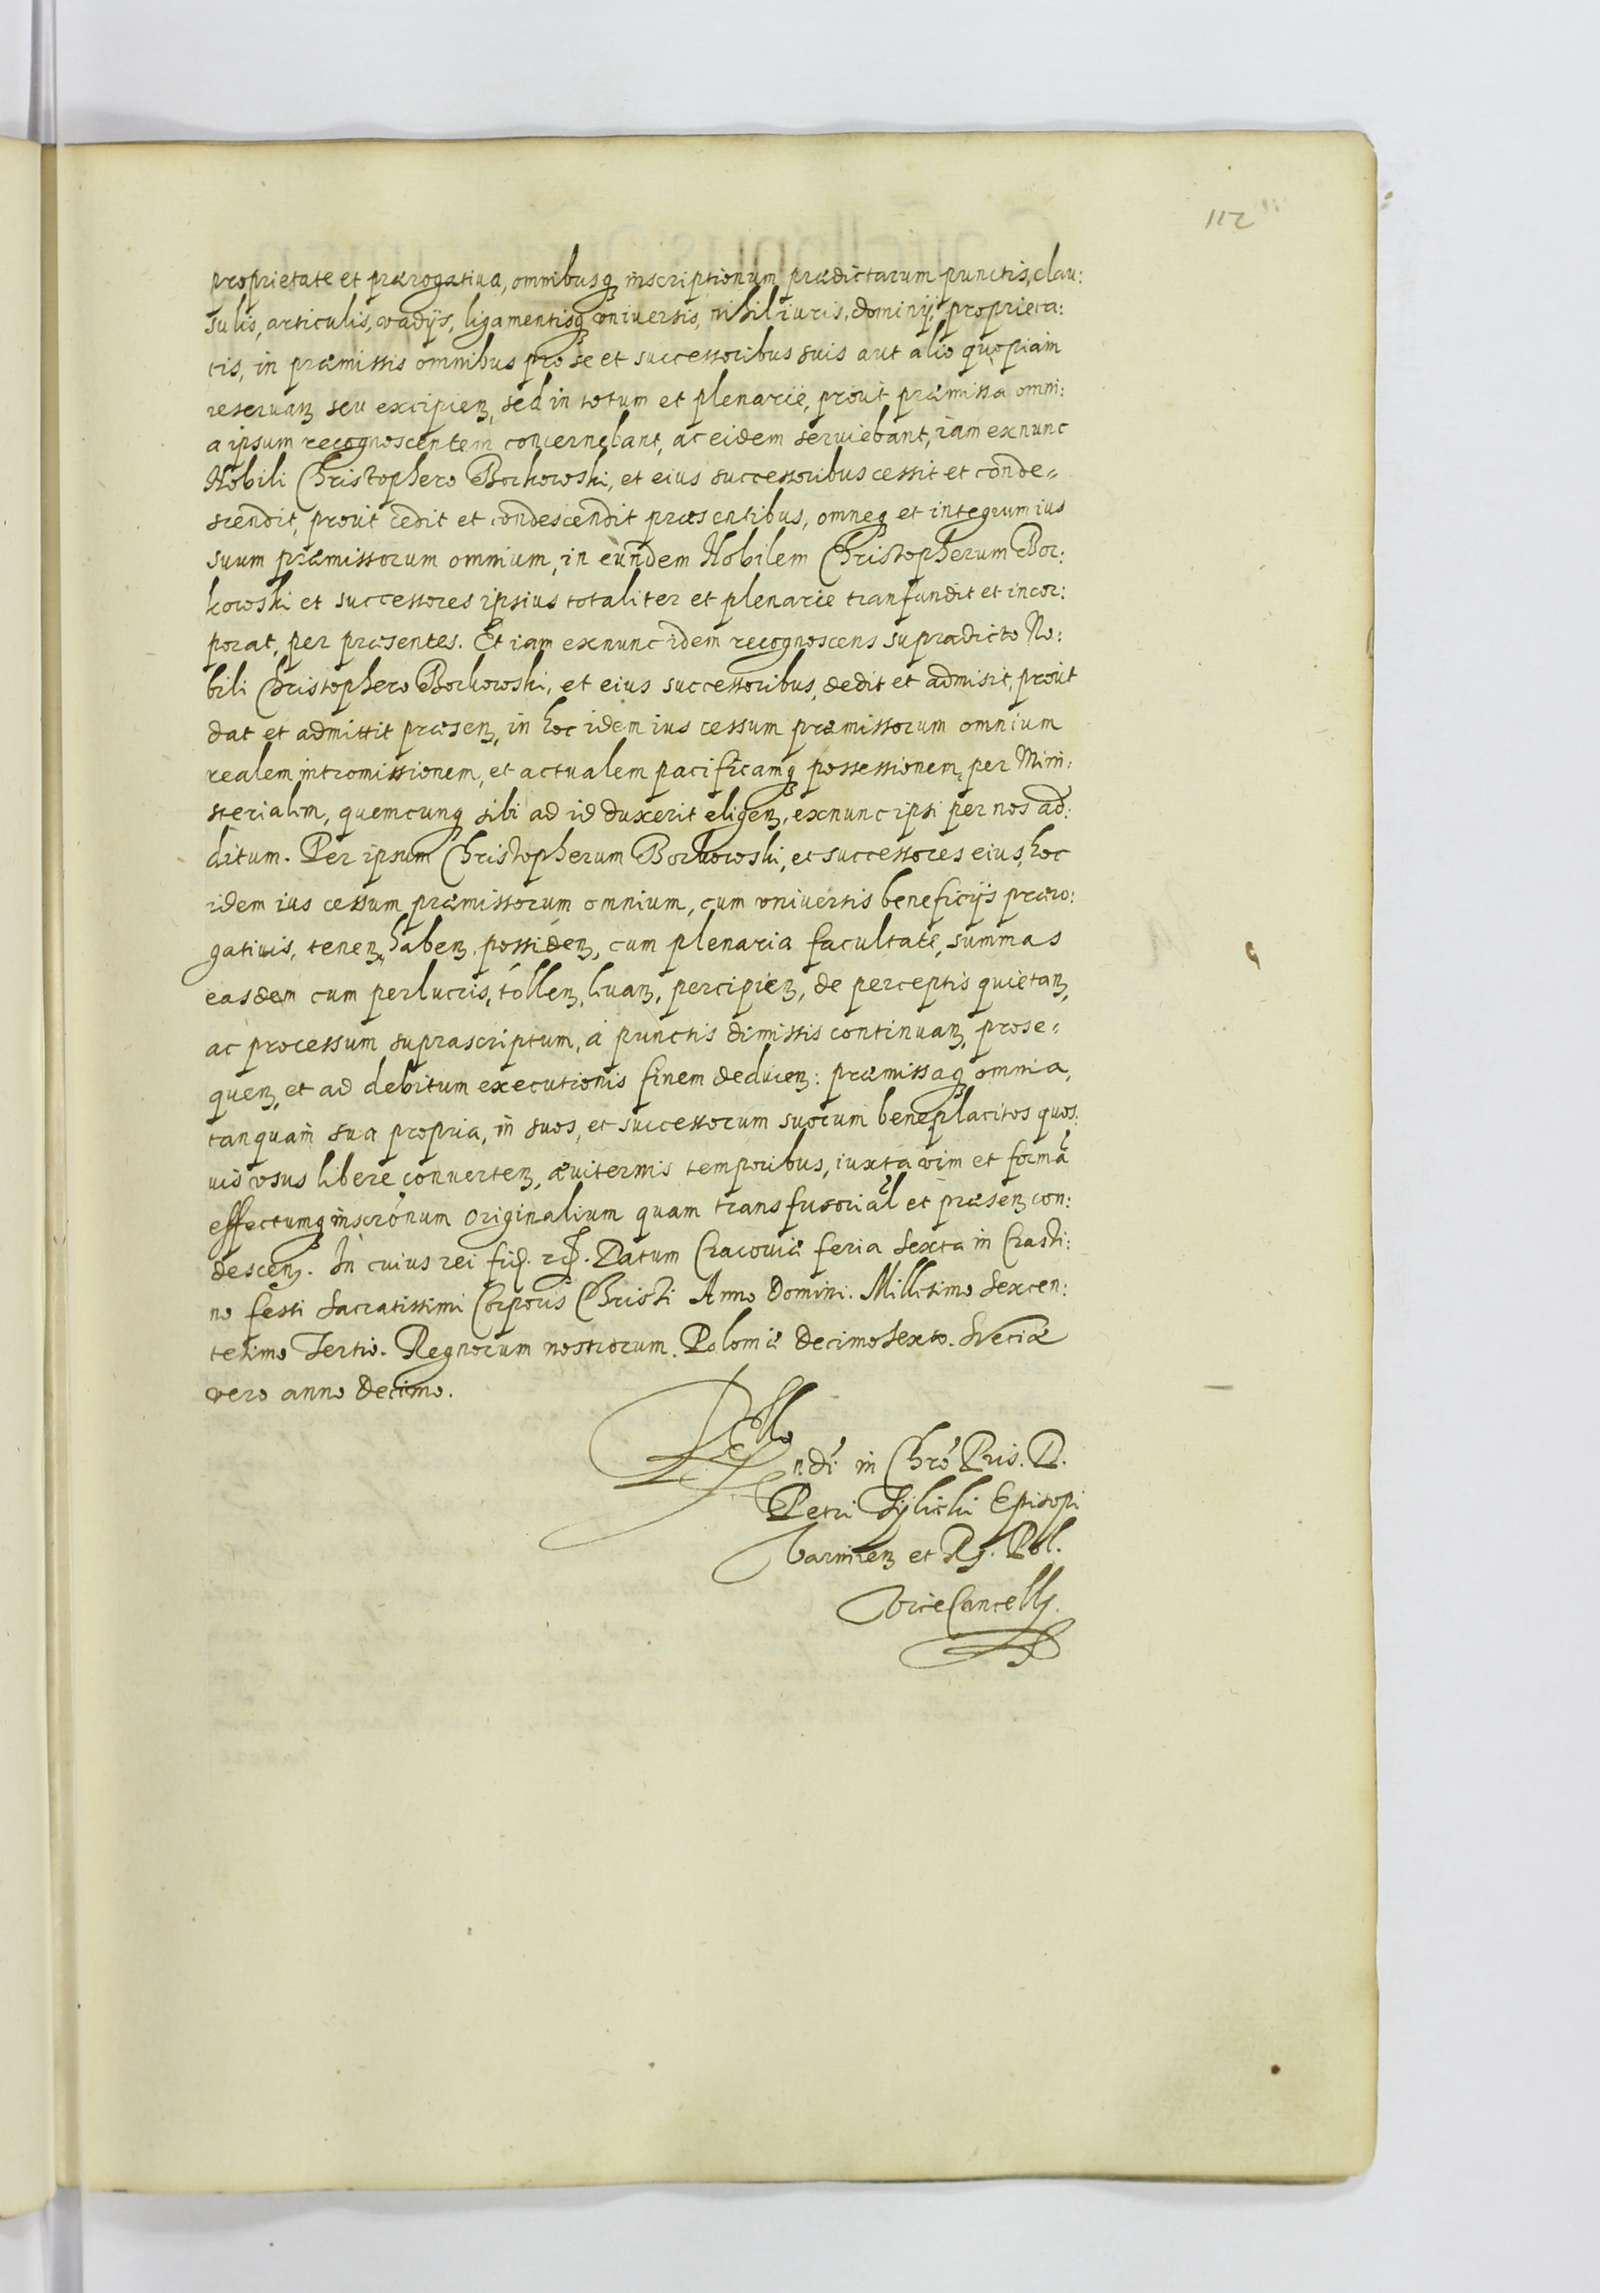 112
proprietate et prærogatiua, omnibusq inscriptionum prædictarum punctis, clau:
sulis, articulis, vadijs, ligamentisq vniuersis, nihil iuris, dominij, proprieta:
tis, in præmissis omnibus pro se et successoribus suis aut alio quopiam
reseruan̄ seu excipien̄, sed in totum et plenarie, prout præmissa omni:
a ipsum recognoscentem concernebant, ac eidem seruiebant, iam exnunc
Nobili Christophero Borkowski, et eius successoribus cessit et conde=
scendit, prout cedit et condescendit præsentibus, omneq et integrum ius
suum præmissorum omnium, in eundem Nobilem Christopherum Bor:
kowski et successores ipsius totaliter et plenarie tranfundit et incor:
porat, per præsentes. Et iam exnunc idem recognoscens supradicto No:
bili Christophero Borkowski, et eius successoribus, dedit et admisit, prout
dat et admittit præsen̄, in hoc idem ius cessum præmissorum omnium
realem intromissionem, et actualem pacificamq possessionem, per Mini:
sterialem, quemcunq sibi ad id duxerit eligen̄, exnunc ipsi per nos ad:
ditum. Per ipsum Christopherum Borkowski, et successores eius, hoc
idem ius cessum præmissorum omnium, cum vniuersis beneficijs præro:
gatiuis, tenen̄, haben̄, possiden̄, cum plenaria facultate, summas
easdem cum perlucris, tollen̄, luan̄, percipien̄, de perceptis quietan̄,
ac processum suprascriptum, a punctis dimissis continuan̄, prose=
quen̄, et ad debitum executionis finem deducen̄: præmissaq omnia,
tanquam sua propria, in suos, et successorum suorum beneplacitos quos:
uis vsus libere conuerten̄, æuiternis temporibus, iuxta vim et formā
effectumq inscrōnum originalium quam transfusorial et præsen̄ con:
descen̄. In cuius rei fid. rc. Datum Cracouiæ feria Sexta in Crasti:
no festi Sacratissimi Corporis Christi Anno Domini. Millesimo Sexcen:
tesimo Tertio. Regnorum nostrorum. Poloniæ decimosexto. Sveciæ
vero anno decimo.
Rello
n: di in Chrō Pris. D.
Petri Tylicki Episcopi
Varmien̄ et R. Pol.
ViceCancell.